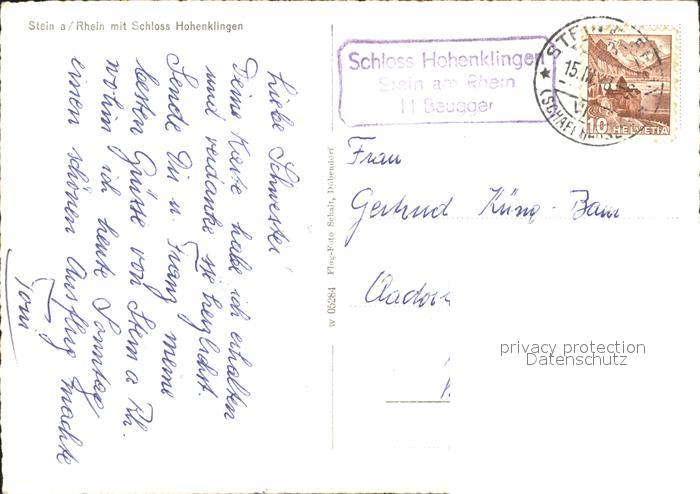 Stein a/Rhein mit Schloss Hohenklingen
Liebe Schwester!
Deine Karte habe ich erhalten
und verdanke sie herzlichst.
Sende Dir u. Franz meine
besten Grüsse von Stein a Rh.
wohin ich heute Sonntag
einen schönen Ausflug machte
Toni
W 05284 Flug-Foto Schait, Dübendorf
Schloss Hohenklingen
Stein am Rhein
H Beugger
STEIN
15.III
(SCHAFFHAUSEN)
10 HELVETIA
Frau
Gertrud Küng-Baur
privacy protection
Datenschutz